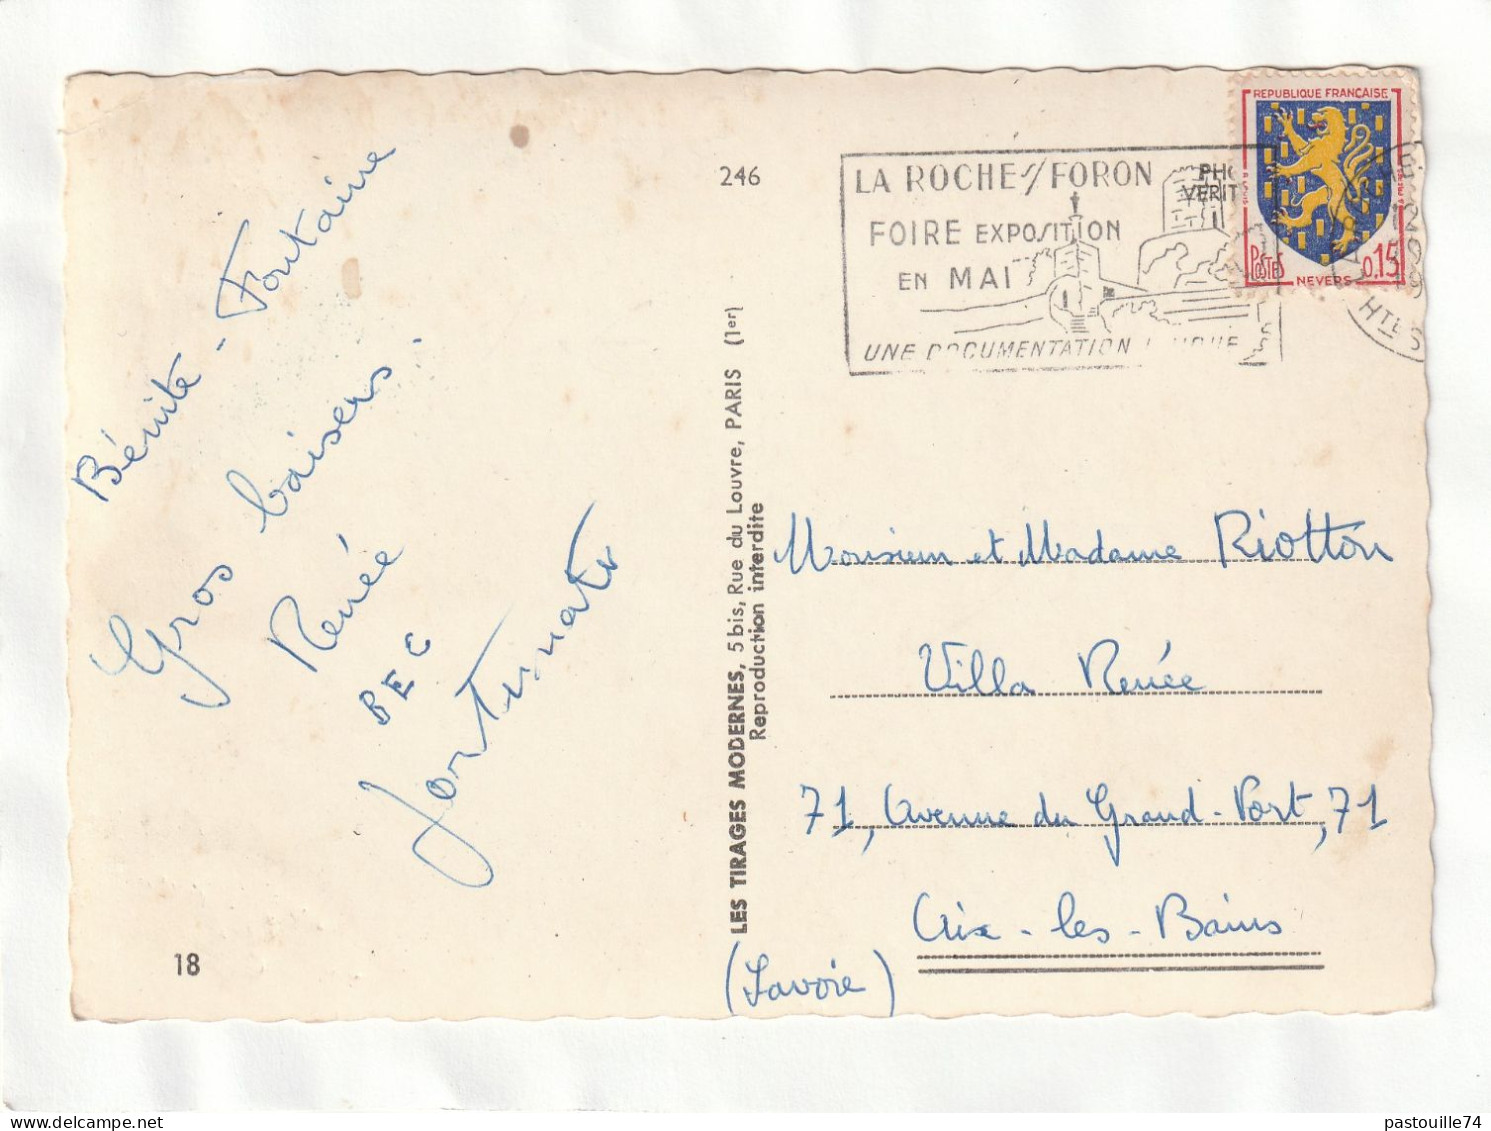 Bénite - Fontaine
Gros baisers.
Renée
BEC
fortunato
18
246
LES TIRAGES MODERNES, 5 bis, Rue du Louvre, PARIS (1er)
Reproduction interdite
LA ROCHE S/ FORON
FOIRE EXPOSITION
EN MAI
UNE DOCUMENTATION
REPUBLIQUE FRANÇAISE
POSTES
NEVERS
0.15
Monsieur et Madame Riotton
Villa Renée
71, Avenue du Grand-Port, 71
Aix-les-Bains
(Savoie)
pastouille74